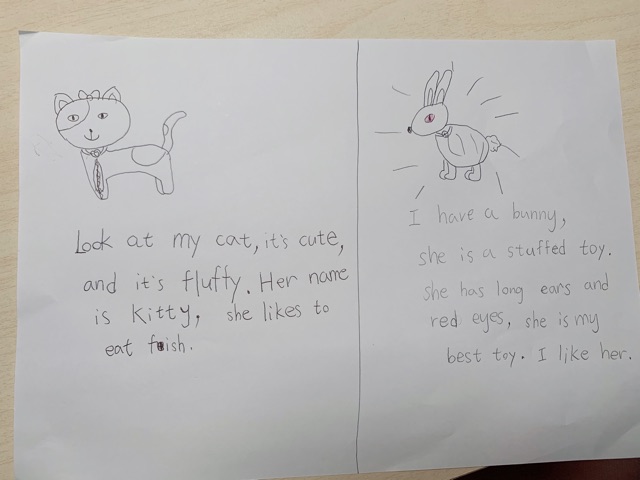 Look at my cat, it's cute,
and it's fluffy. Her name
is Kitty, she likes to
eat fish.
I have a bunny,
she is a stuffed toy.
She has long ears and
red eyes, she is my
best toy. I like her.